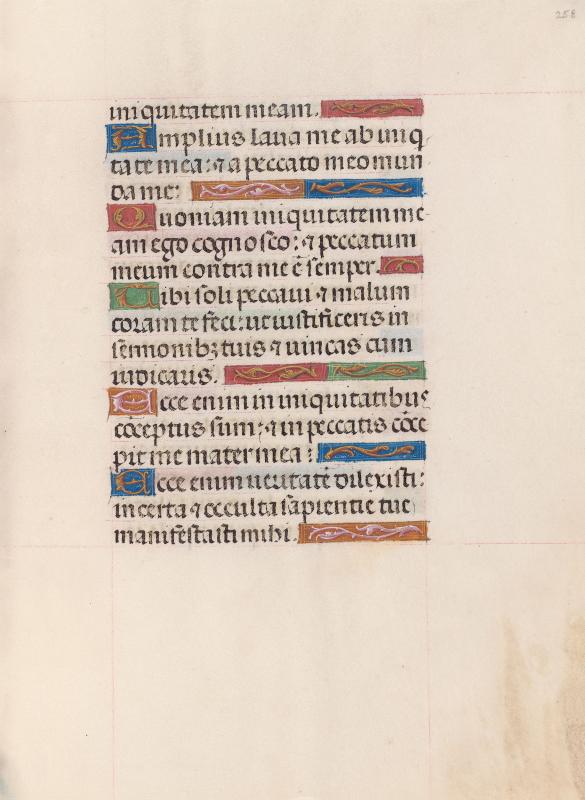 258
iniquitatem meam.
Amplius laua me ab iniq
tate mea: ⁊ a peccato meo mun
da me:
Quoniam iniquitatem me
am ego cognosco: ⁊ peccatum
meum contra me ē semper.
Tibi soli peccaui ⁊ malum
coram te feci: ut iustificeris in
sermonibꝫ tuis ⁊ uincas cum
iudicaris.
Ecce enim in iniquitatibus
cōceptus sum: ⁊ in peccatis cōce
pit me mater mea:
Ecce enim ueritatē dilexisti:
incerta ⁊ occulta sapientie tue
manifestasti mihi.